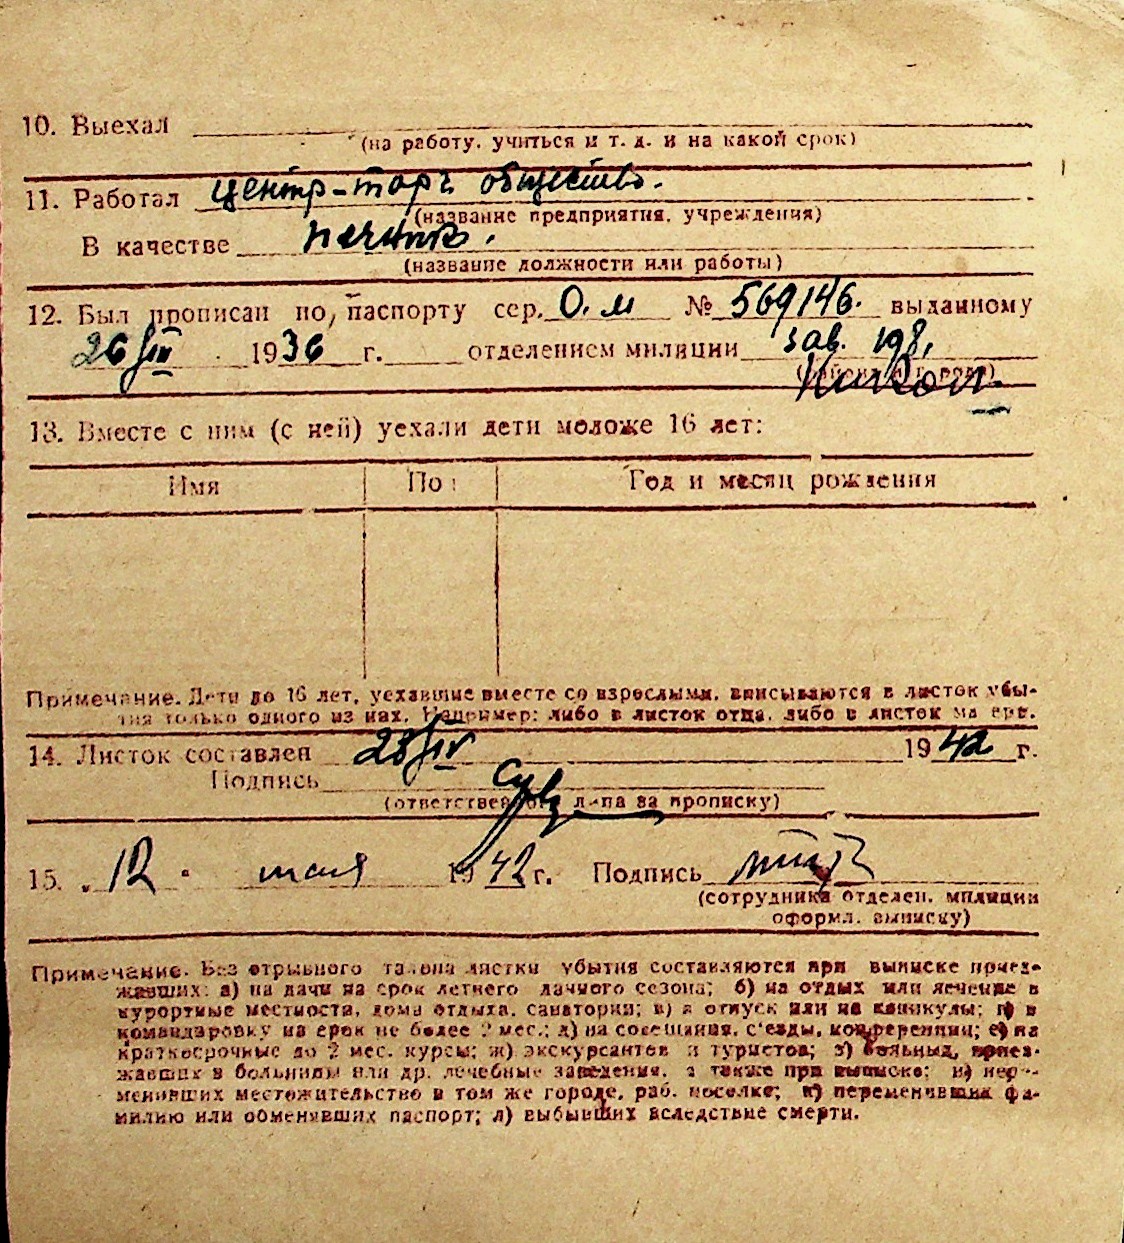 10. Выехал
(на работу, учиться и т. д. и на какой срок)
11. Работал центр-торг общество.
(название предприятия, учреждения)
В качестве
(название должности или работы)
12. Был прописан по паспорту сер. О. м № 569146. выданному
26/III 1936 г. отделением милиции зав. 198,
13. Вместе с ним (с ней) уехали дети моложе 16 лет:
Имя По Год и месяц рождения
Примечание. Дети до 16 лет, уехавшие вместе со взрослыми, вписываются в листок убы-
тия только одного из них. Например: либо в листок отца, либо в листок матери.
14. Листок составлен 28/IV 1942 г.
Подпись
(ответствен. лица за прописку)
15. "12" мая 1942 г. Подпись
(сотрудника отделен. милиции
оформл. выписку)
Примечание. Без отрывного талона листки убытия составляются при выписке приез-
жавших: а) на дачи на срок летнего дачного сезона; б) на отдых или лечение в
курортные местности, дома отдыха, санатории; в) в отпуск или на каникулы; г) в
командировку на срок не более 2 мес.; д) на совещания, с'езды, конференции; е) на
краткосрочные до 2 мес. курсы; ж) экскурсантов и туристов; з) больных, приез-
жавших в больницы или др. лечебные заведения, а также при выписке; и) пер-
менивших местожительство в том же городе, раб. поселке; к) переменивших фа-
милию или обменявших паспорт; л) выбывших вследствие смерти.